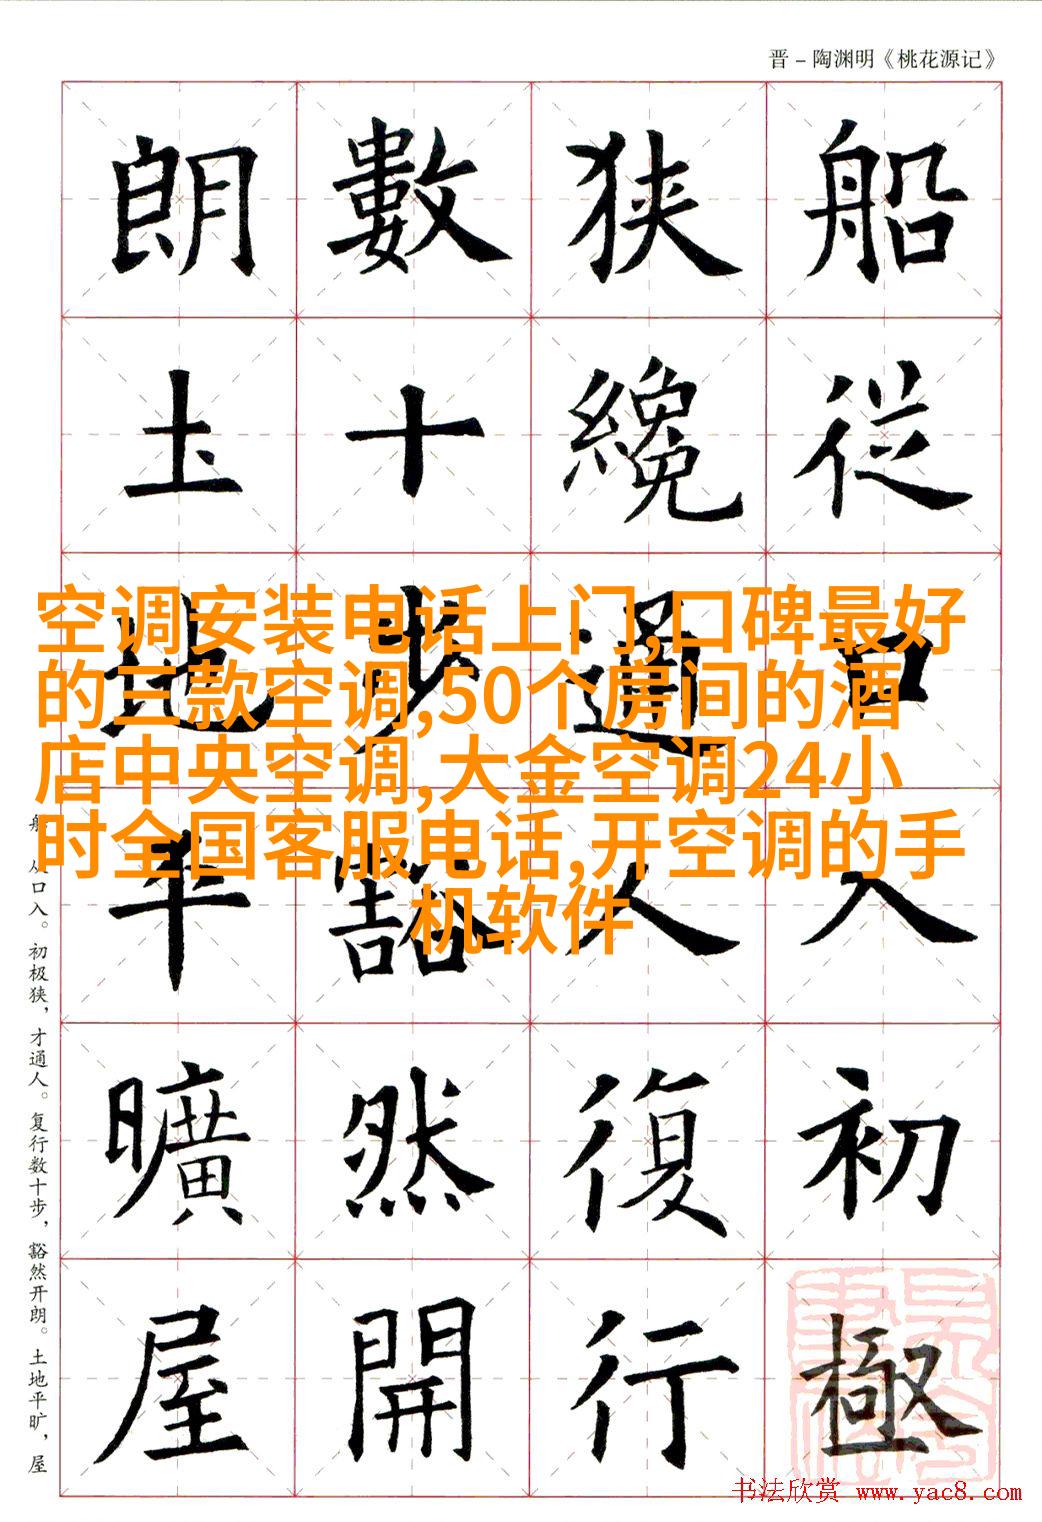 晋－陶渊明《桃花源记》
船從口入初極
狭纔通人復行
數十步豁然開
朗土地平曠屋
空调安装电话上门,口碑最好
的三款空调,50个房间的酒
店中央空调,大金空调24小
时全国客服电话,开空调的手
机软件
船，从口入。初极狭，才通人。复行数十步，豁然开朗。土地平旷，屋
书法欣赏 www.yac8.com